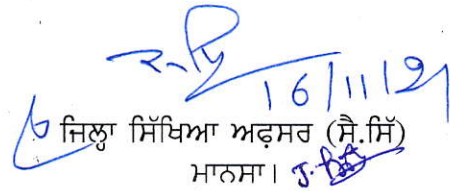 16/11/21
ਜਿਲ੍ਹਾ ਸਿੱਖਿਆ ਅਫ਼ਸਰ (ਸੈ.ਸਿੱ)
ਮਾਨਸਾ।